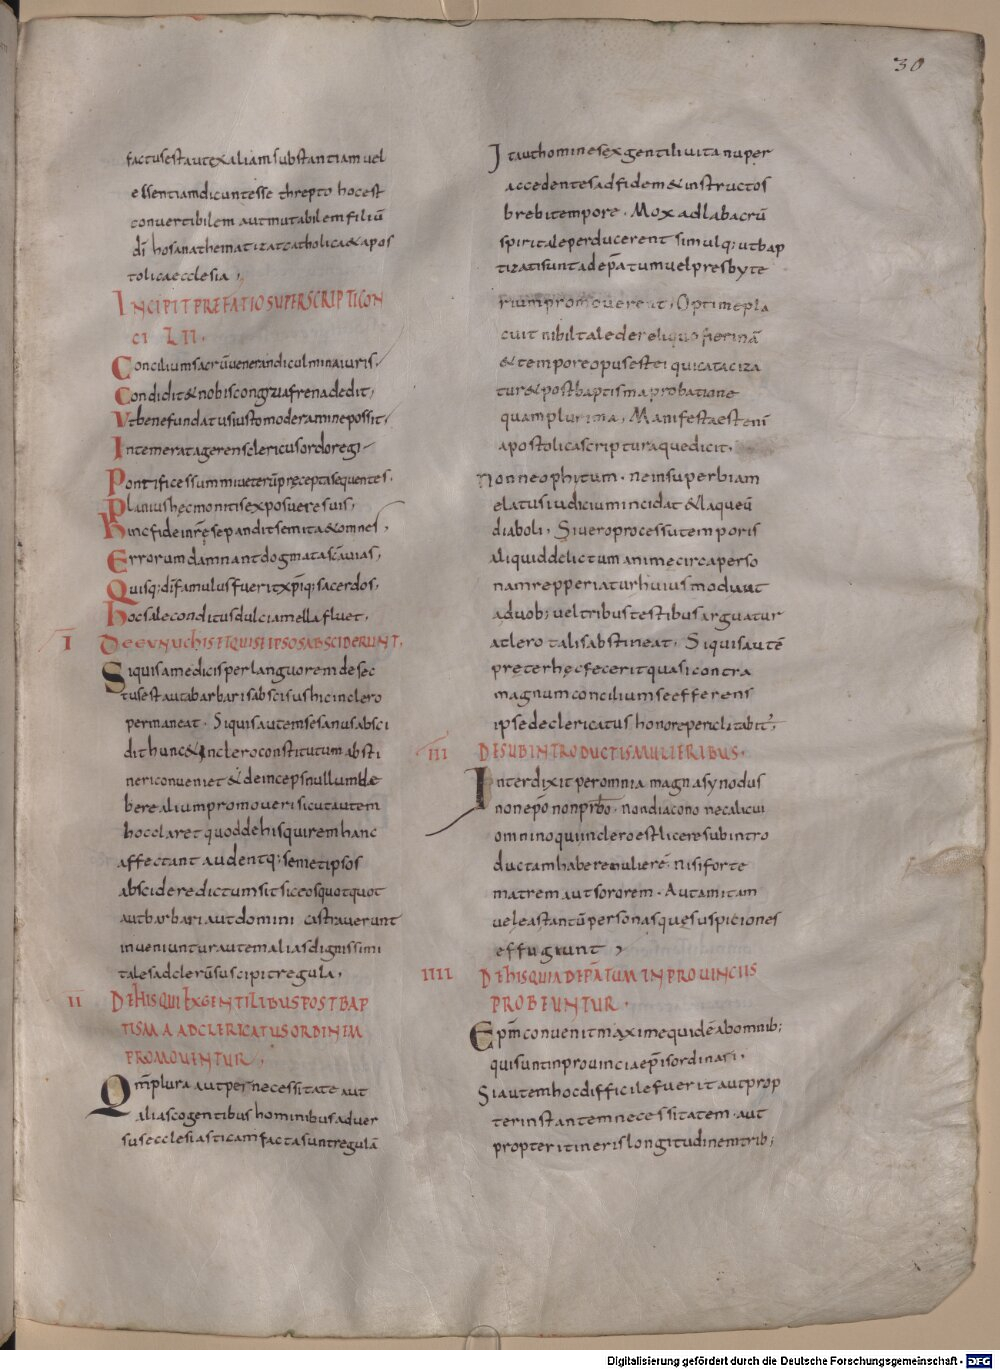 30
factus est aut ex alia m substantiam uel
essentiam dicunt esse threpto hoc est
conuertibilem aut mutabilem filiū
dī hos anathematizat catholica & apos
tolica ecclesia ;
INCIPIT PREFATIO SUPERSCRIPTI CON
CI LII .
Concilium sacrū uenerandi culmina iuris .
Condidit & nobis congrua frena dedit ;
Vt bene fundatus iusto moderamine possit .
Intemerata gerens clericus ordo regi
Pontifices summi ueterū precepta sequentes .
Planius hęc monitis exposuere suis ;
hinc fidei nr̄ę se pandit semita & omnes .
Errorum damnant dogmata scā uias ;
Quisq; dī famulus fuerit xpīq; sacerdos .
hoc sale conditus dulcia mella fluet .
I DE EUNUCHIS ET QUI SE IPSOS ABSCIDERUNT .
Siquis a medicis per languorem desec
tus est aut a barbaris abscisus hic in clero
permaneat . Siquis autem se sanus absci
dit hunc & in clero constitutum absti
neri conueniet & deinceps nullum dæ
bere alium promoueri sicut autem
hoc claret quod de his qui rem hanc
affectant audentq; semetipsos
abscidere dictum sit sic eos quot quot
aut barbari aut domini castrauerunt
inueniuntur autem alias dignissimi
tales ad clerū suscipit regula ,
II DE HIS QUI EX GENTILIBUS POST BAP
TISMA AD CLERICATUS ORDINEM
PROMOUENTUR ;
Qm̄ plura aut per necessitate aut
alias cogentibus hominibus aduer
sus ecclesiasticam facta sunt regulā
Ita ut homines ex gentili uita nuper
accedentes ad fidem & instructos
breui tempore . Mox ad labacrū
spiritale perducerent simulq; ut bap
tizati sunt ad ep̄atum uel presbyte
rium promouerent ; Optime pla
cuit nihil tale de reliquo fieri nā
& tempore opus est ei qui cataciza
tur & post baptisma probatione
quam plurima . Manifesta est enī
apostolica scriptura que dicit .
Non neophitum . ne in superbiam
elatus iudicium incidat & laqueū
diaboli . Si uero processu temporis
aliquid delictum anime circa perso
nam repperiatur huius modi ut
a duob; uel tribus testibus arguatur
a clero talis abstineat . Siquis autē
preter hęc fecerit quasi contra
magnum concilium se efferens
ipse de clericatus honore periclitabit̄ .
III DE SUBINTRODUCTIS MULIERIBUS .
Interdixit per omnia magna synodus
non ep̄o non prb̄o . non diacono nec alicui
omnino qui in clero est licere subintro
ductam habere mulierē . nisi forte
matrem aut sororem . Aut amitam
uel eas tantū personas quę suspiciones
effugiunt ;
IIII DE HIS QUI AD EP̄ATUM IN PROUINCIIS
PROBEUNTUR .
Ep̄m conuenit maxime quidē ab omnib;
qui sunt in prouincia ep̄is ordinari .
Si autem hoc difficile fuerit aut prop
ter instantem necessitatem . aut
propter itineris longitudinem trib;
Digitalisierung gefördert durch die Deutsche Forschungsgemeinschaft - DFG